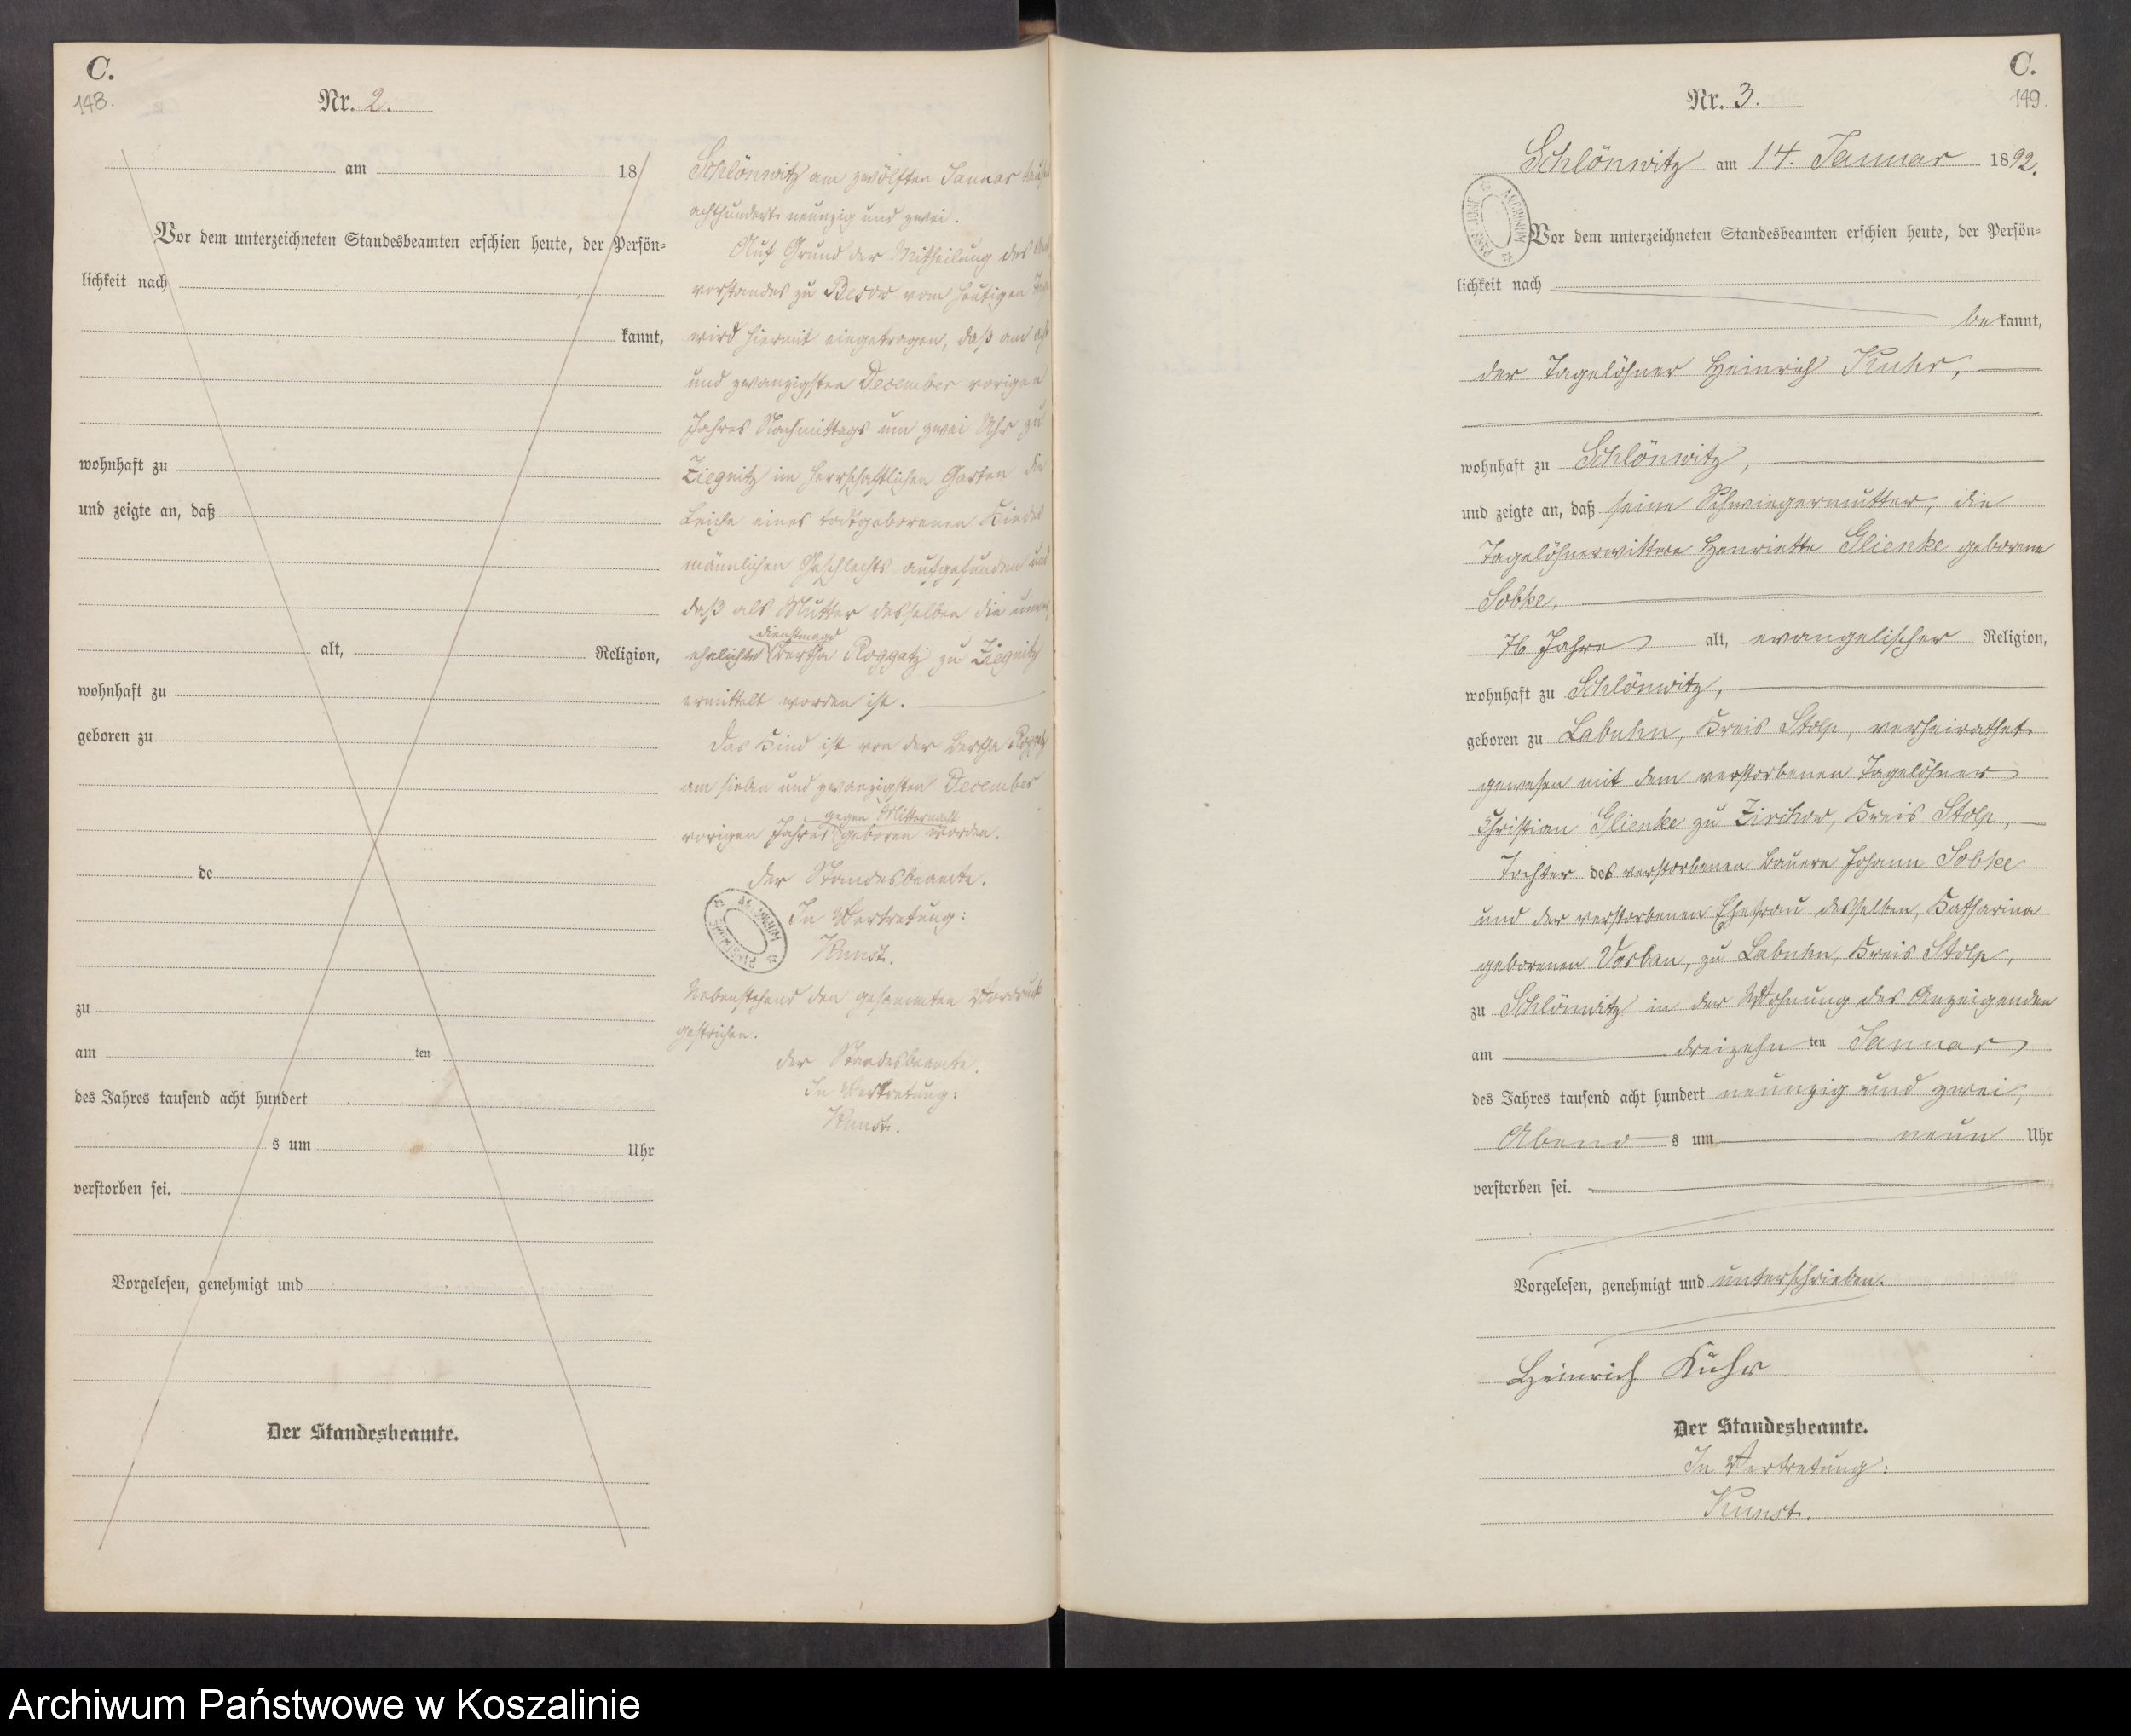 C.
148.
Nr. 2.
am 18
Vor dem unterzeichneten Standesbeamten erschien heute, der Persön-
lichkeit nach
kannt,
wohnhaft zu
und zeigte an, daß
alt, Religion,
wohnhaft zu
geboren zu
de
zu
am ten
des Jahres tausend acht hundert
s um Uhr
verstorben sei.
Vorgelesen, genehmigt und
Der Standesbeamte.
Schlönwitz am zwölften Januar
achthundert neunzig und zwei.
Auf Grund der Mittheilung des
vorstandes zu Besow vom heutigen
wird hiermit eingetragen, daß am
und zwanzigsten December vorigen
Jahres Nachmittags um zwei Uhr zu
Ziegnitz im herrschaftlichen Garten die
Leiche eines todtgeborenen Kindes
männlichen Geschlechts aufgefunden und
daß als Mutter desselben die unver
ehelichte Dienstmagd Bertha Roggatz zu Ziegnitz
ermittelt worden ist.
Das Kind ist von der Bertha Roggatz
am sieben und zwanzigsten December
vorigen Jahres gegen Mitternacht geboren worden.
Der Standesbeamte.
In Vertretung:
Kunst.
Nebenstehend den gesammten Vordruck
gestrichen.
Der Standesbeamte.
In Vertretung:
Kunst.
C.
149.
Nr. 3.
Schlönwitz am 14. Januar 1892.
Vor dem unterzeichneten Standesbeamten erschien heute, der Persön-
lichkeit nach
be kannt,
der Tagelöhner Heinrich Kuhr,
wohnhaft zu Schlönwitz,
und zeigte an, daß seine Schwiegermutter, die
Tagelöhnerwittwe Henriette Glienke geborene
Sobke,
76 Jahre alt, evangelischer Religion,
wohnhaft zu Schlönwitz,
geboren zu Labuhn, Kreis Stolp, verheirathet
gewesen mit dem verstorbenen Tagelöhner
Christian Glienke zu Zirchow, Kreis Stolp,
Tochter des verstorbenen Bauern Johann Sobke
und der verstorbenen Ehefrau desselben, Katharina
geborenen Vorban, zu Labuhn, Kreis Stolp,
zu Schlönwitz in der Wohnung des Anzeigenden
am dreizehn ten Januar
des Jahres tausend acht hundert neunzig und zwei,
Abend s um neun Uhr
verstorben sei.
Vorgelesen, genehmigt und unterschrieben.
Heinrich Kuhr
Der Standesbeamte.
In Vertretung:
Kunst.
Archiwum Państwowe w Koszalinie